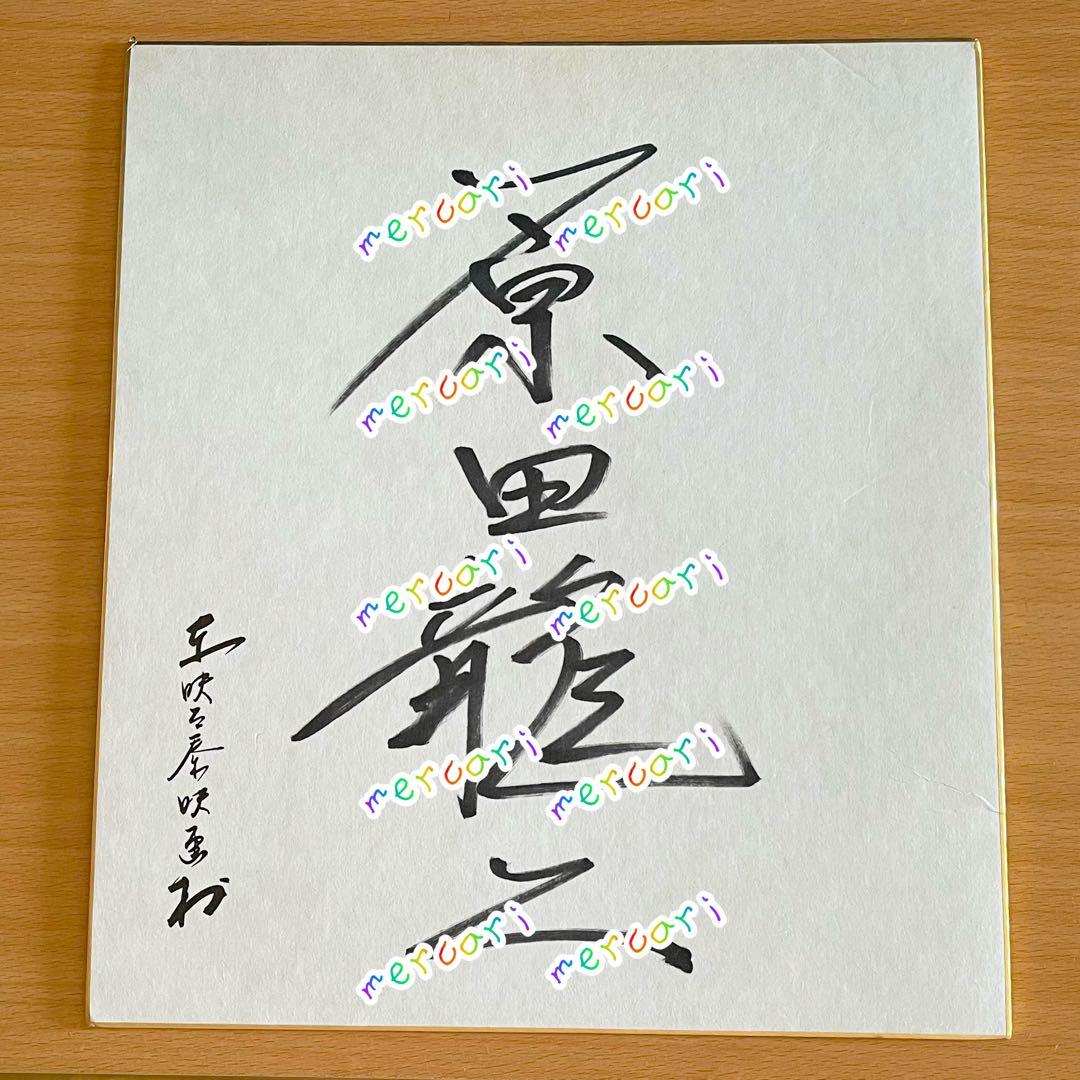 原田龍二
東映太秦映画村
mercari mercari
mercari mercari
mercari mercari
mercari mercari
mercari mercari